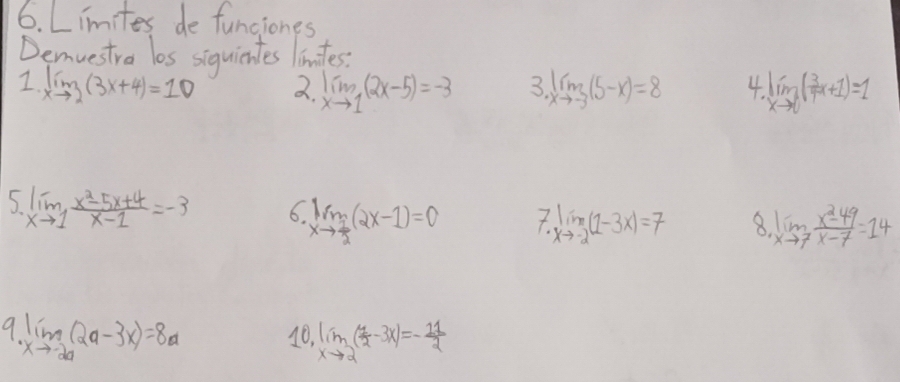 6. Límites de funciones
Demuestra los siguientes límites:
1. lím x→2 (3x+4)=10 2. lím x→1 (2x-5)=-3 3. lím x→-3 (5-x)=8 4. lím x→0 (3/7x+1)=1
5. lím x→1 x²-5x+4/x-1 =-3 6. lím x→1/2 (2x-1)=0 7. lím x→-2 (1-3x)=7 8. lím x→7 x²-49/x-7 =14
9. lím x→-2a (2a-3x)=8a 10. lím x→2 (1/2-3x)=-11/2